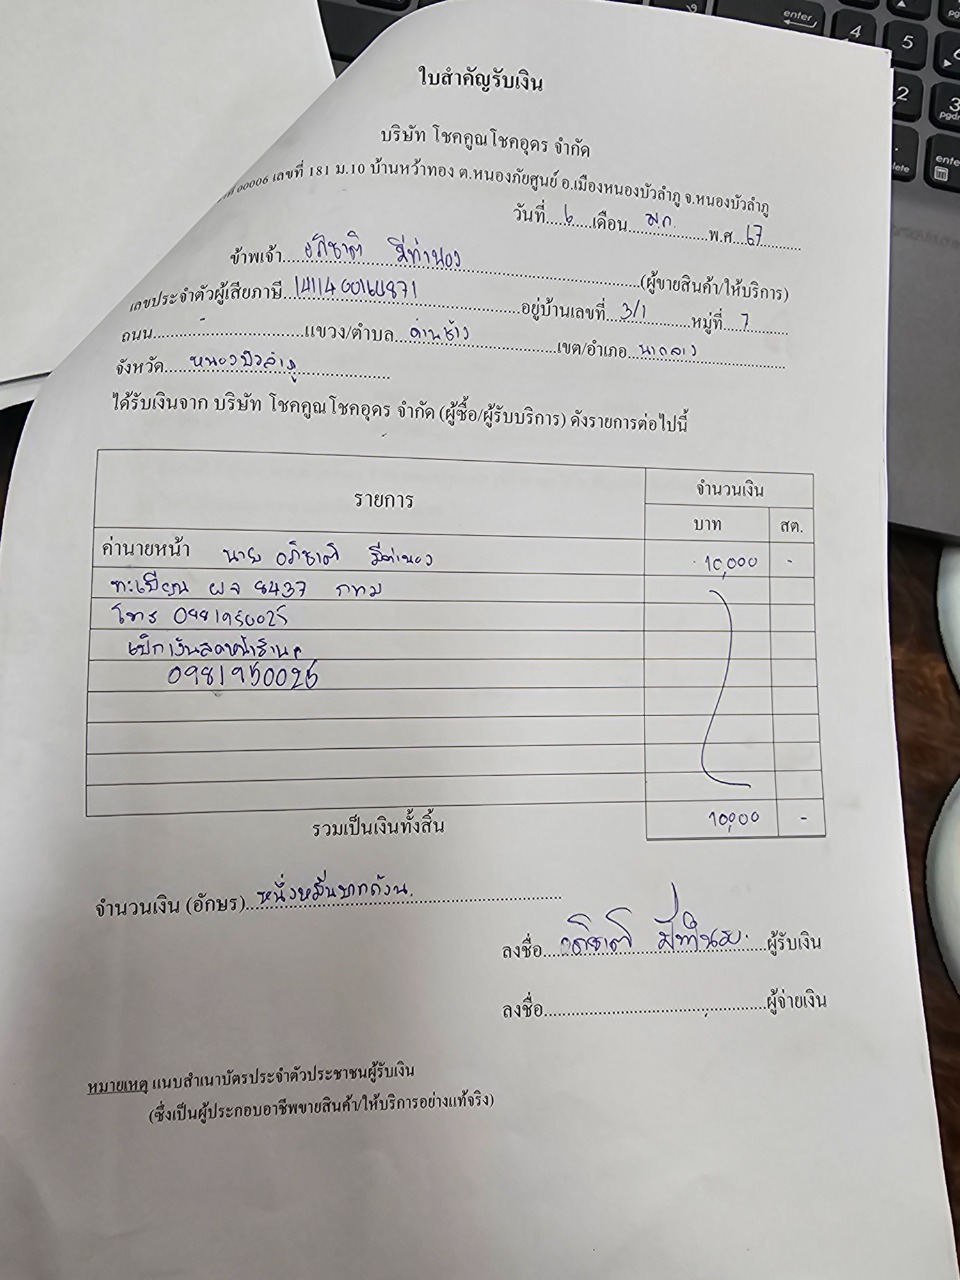 ใบสำคัญรับเงิน
บริษัท โชคคูณโชคอุดร จำกัด
00006 เลขที่ 181 ม.10 บ้านหว้าทอง ต.หนองภัยศูนย์ อ.เมืองหนองบัวลำภู จ.หนองบัวลำภู
วันที่ 6 เดือน ม.ค. พ.ศ. 67
ข้าพเจ้า อภิชาติ มีทำนอง (ผู้ขายสินค้า/ให้บริการ)
เลขประจำตัวผู้เสียภาษี อยู่บ้านเลขที่ 3/1 หมู่ที่ 7
ถนน แขวง/ตำบล ด่านช้าง เขต/อำเภอ นากลาง
จังหวัด หนองบัวลำภู
ได้รับเงินจาก บริษัท โชคคูณโชคอุดร จำกัด (ผู้ซื้อ/ผู้รับบริการ) ดังรายการต่อไปนี้
รายการ จำนวนเงิน
บาท สต.
ค่านายหน้า นาย อภิชาติ มีทำนอง 10,000 -
ทะเบียน 8437 กทม
โทร 0981950025
เบิกเงินสดหน้าร้าน
0981950025
รวมเป็นเงินทั้งสิ้น 10,000 -
จำนวนเงิน (อักษร) หนึ่งหมื่นบาทถ้วน
ลงชื่อ อภิชาติ มีทำนอง ผู้รับเงิน
ลงชื่อ ผู้จ่ายเงิน
หมายเหตุ แนบสำเนาบัตรประจำตัวประชาชนผู้รับเงิน
(ซึ่งเป็นผู้ประกอบอาชีพขายสินค้า/ให้บริการอย่างแท้จริง)